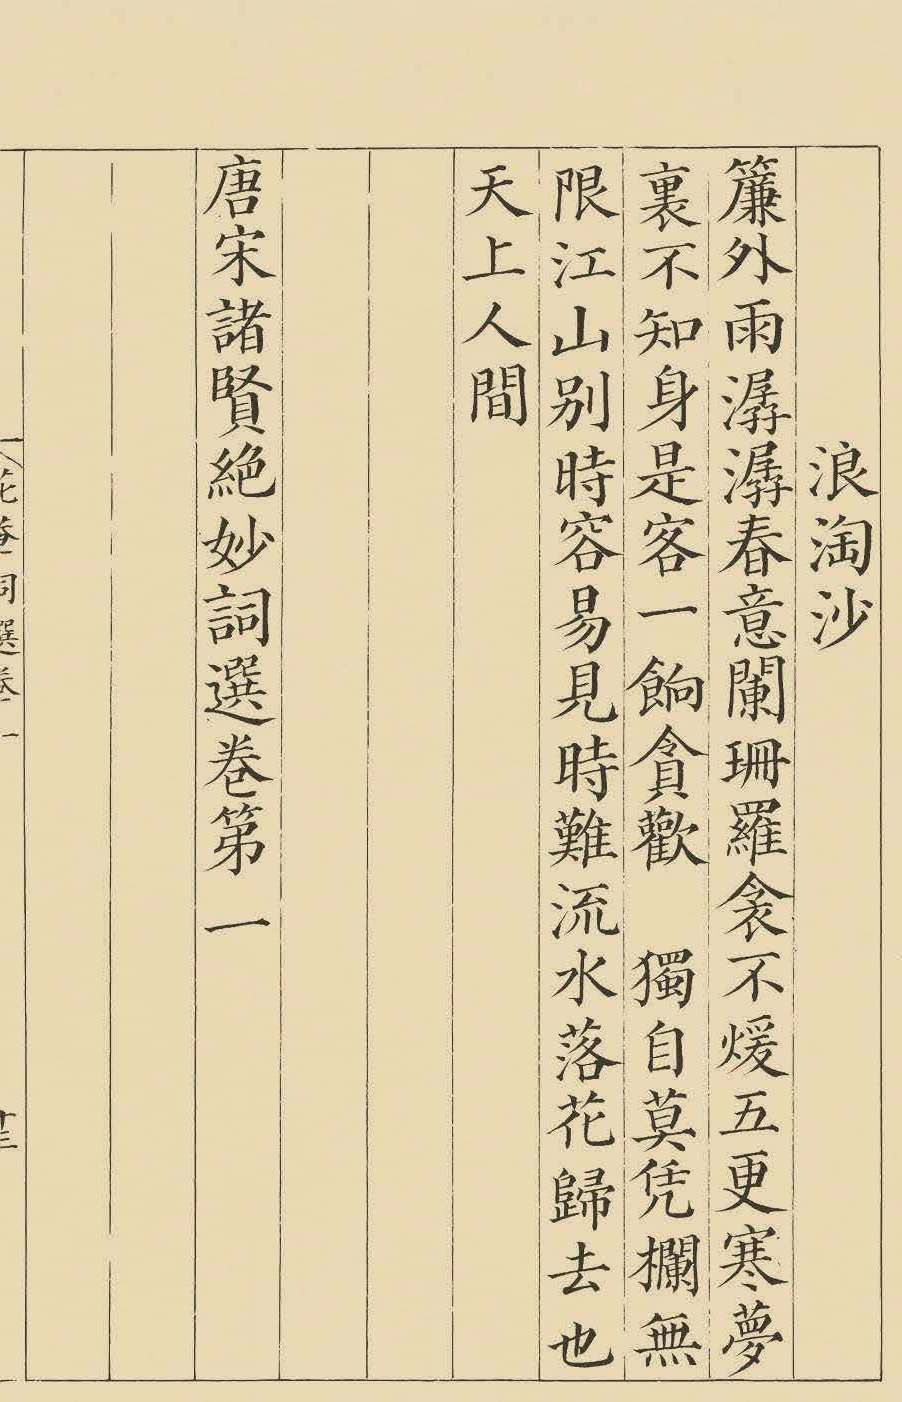 浪淘沙
簾外雨潺潺春意闌珊羅衾不煖五更寒夢
裏不知身是客一餉貪歡　獨自莫凭欄無
限江山别時容易見時難流水落花歸去也
天上人間
唐宋諸賢絶妙詞選卷第一
花菴詞選卷一
十三